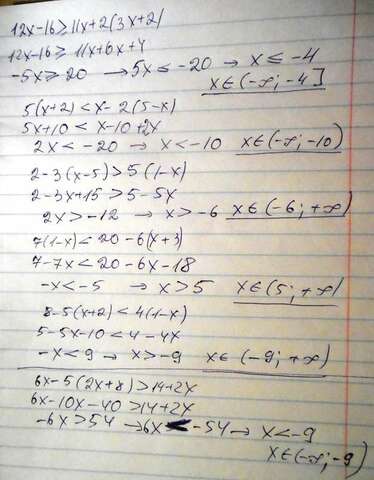 12x-16≥11x+2(3x+2)
12x-16≥11x+6x+4
-5x≥20 → 5x≤-20 → x≤-4
x∈(-∞;-4]
5(x+2)<x-2(5-x)
5x+10<x-10+2x
2x<-20 → x<-10 x∈(-∞;-10)
2-3(x-5)>5(1-x)
2-3x+15>5-5x
2x>-12 → x>-6 x∈(-6;+∞)
7(1-x)<20-6(x+3)
7-7x<20-6x-18
-x<-5 → x>5 x∈(5;+∞)
8-5(x+2)<4(1-x)
5-5x-10<4-4x
-x<9 → x>-9 x∈(-9;+∞)
6x-5(2x+8)>14+2x
6x-10x-40>14+2x
-6x>54 → 6x<-54 → x<-9
x∈(-∞;-9)